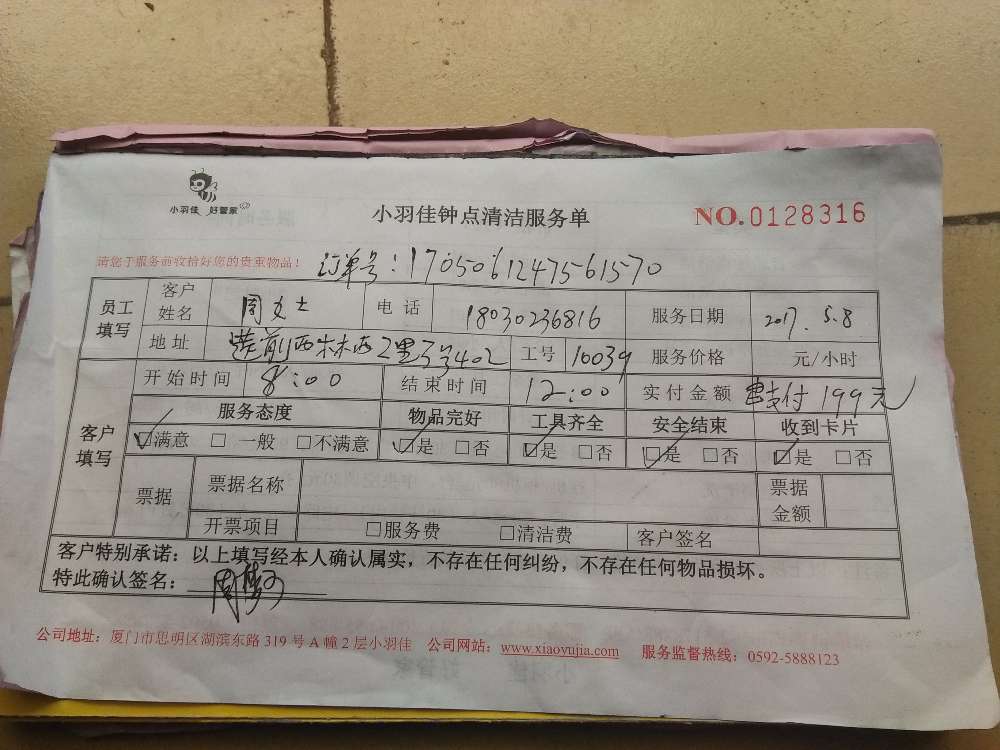 小羽佳 好管家
小羽佳钟点清洁服务单
NO.0128316
请您于服务前收拾好您的贵重物品!
订单号:1705061247561570
员工填写 客户姓名 周女士 电话 18030236816 服务日期 2017.5.8
地址 莲前西林西2里3号402 工号 10039 服务价格 元/小时
开始时间 8:00 结束时间 12:00 实付金额 支付199元
客户填写 服务态度 物品完好 工具齐全 安全结束 收到卡片
☑满意 □一般 □不满意 ☑是 □否 ☑是 □否 ☑是 □否 ☑是 □否
票据 票据名称 票据金额
开票项目 □服务费 □清洁费 客户签名
客户特别承诺:以上填写经本人确认属实,不存在任何纠纷,不存在任何物品损坏。
特此确认签名: 周
公司地址:厦门市思明区湖滨东路319号A幢2层小羽佳 公司网站:www.xiaoyujia.com 服务监督热线:0592-5888123